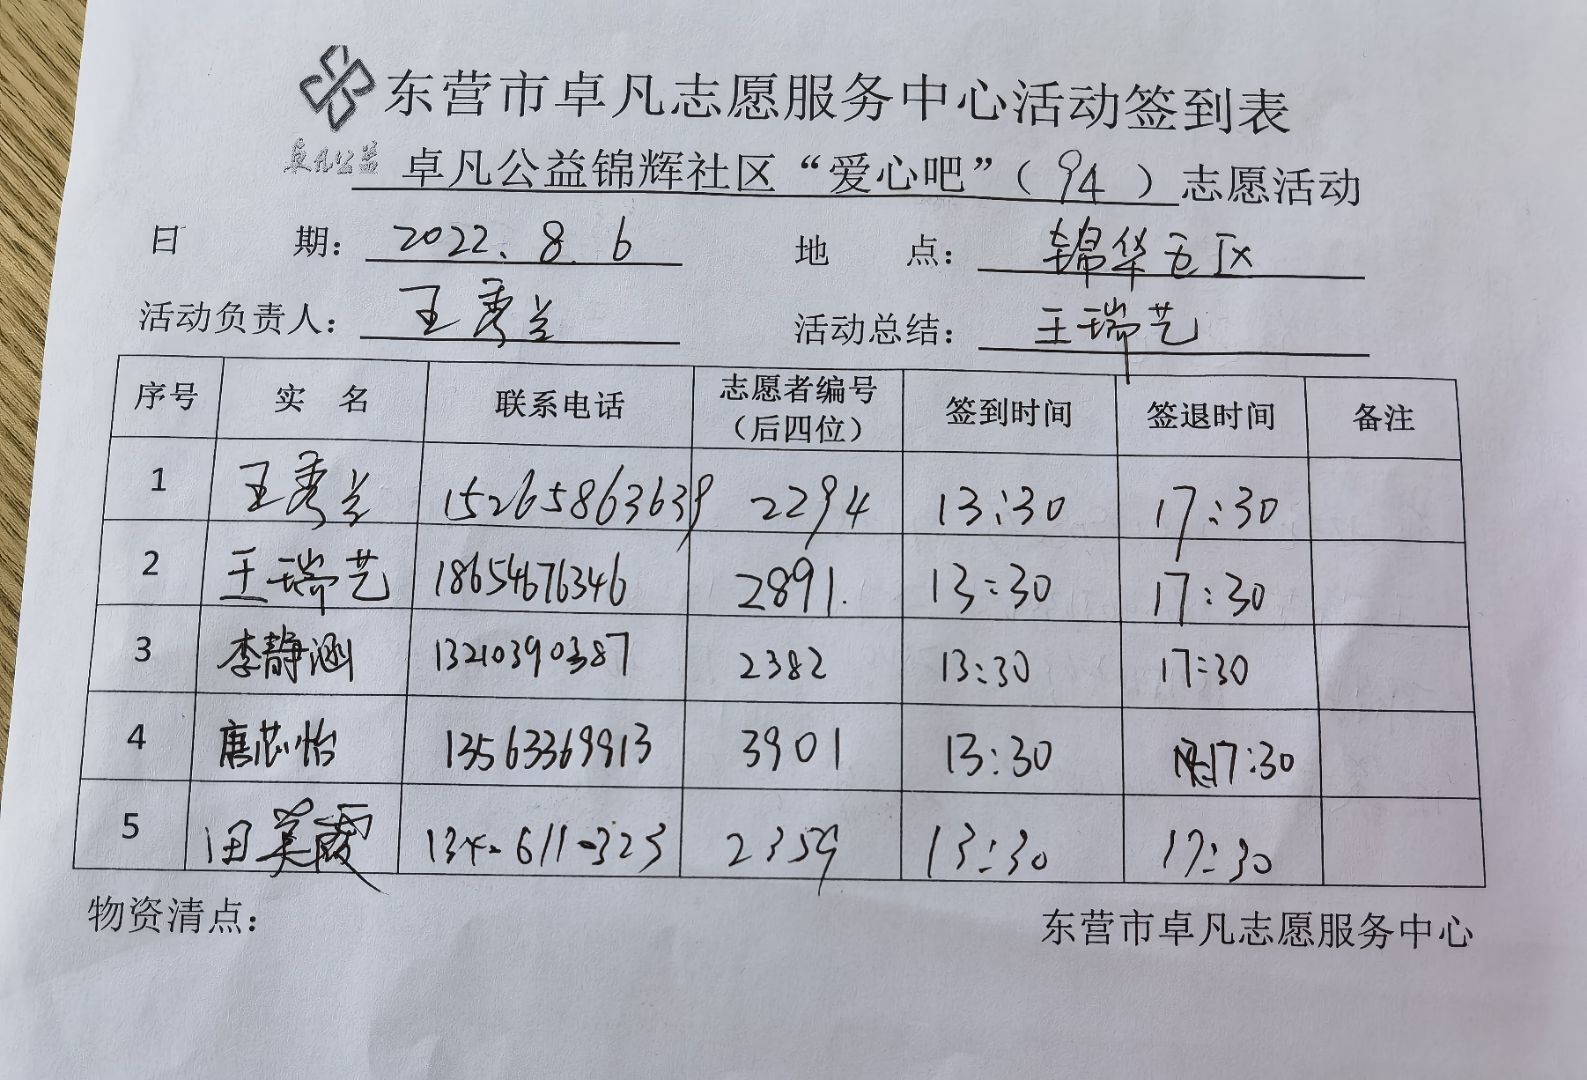 东营市卓凡志愿服务中心活动签到表
卓凡公益 卓凡公益锦辉社区“爱心吧”（94）志愿活动
日 期： 2022.8.6 地 点： 锦华五区
活动负责人： 王秀兰 活动总结： 王瑞艺
序号 实 名 联系电话 志愿者编号（后四位） 签到时间 签退时间 备注
1 王秀兰 15265863639 2294 13:30 17:30
2 王瑞艺 18654676346 2891. 13:30 17:30
3 李静涵 13210390387 2382 13:30 17:30
4 唐芯怡 13563369913 3901 13:30 17:30
5 田美霞 2359 13:30 17:30
物资清点： 东营市卓凡志愿服务中心